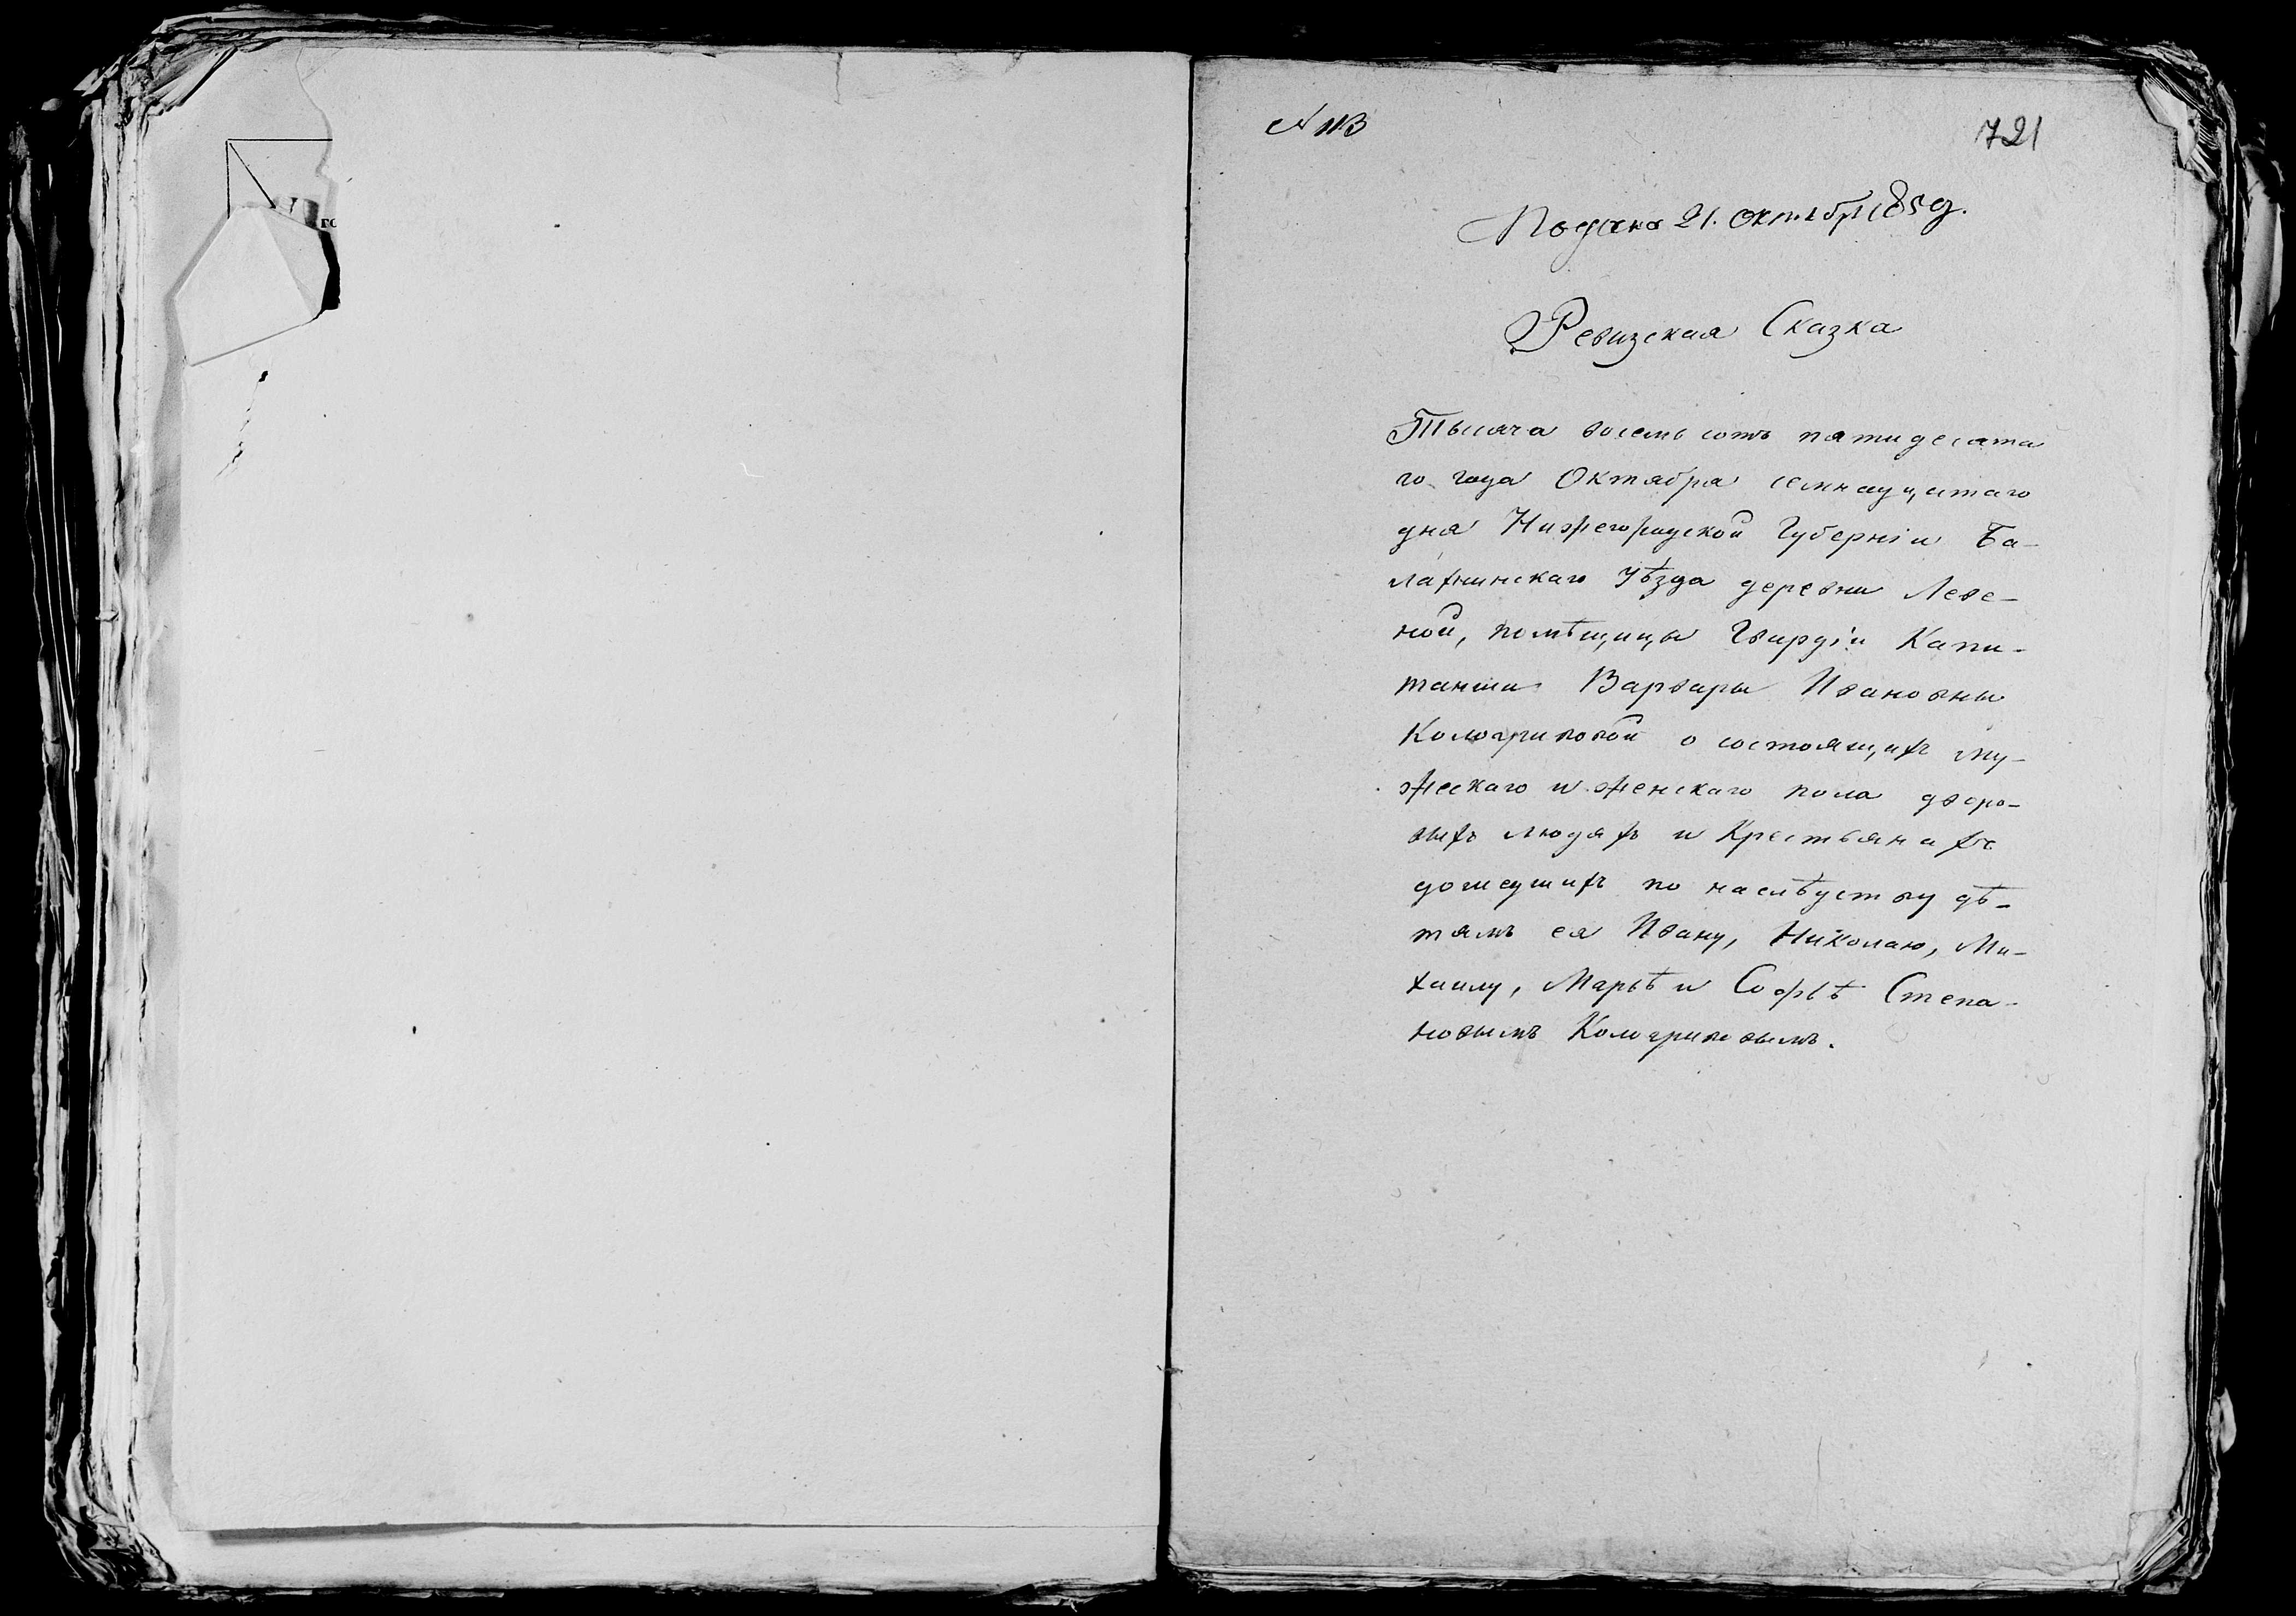 N 113
721
Подана 21. октября 1850.
Ревизская Сказка
Тысяча восемь сотъ пятидесята
го года Октября семнадцатаго
дня Нижегородской Губерніи Ба-
лахнинскаго Уѣзда деревни Леве-
ной, помѣщицы Гвардіи Капи-
танши Варвары Ивановны
Кологривовой о состоящихъ му-
жескаго и женскаго пола дворо-
выхъ людяхъ и Крестьянахъ
дошедшихъ по наслѣдству дѣ-
тямъ ея Ивану, Николаю, Ми-
хаилу, Марьѣ и Софьѣ Степа-
новымъ Кологривовымъ.